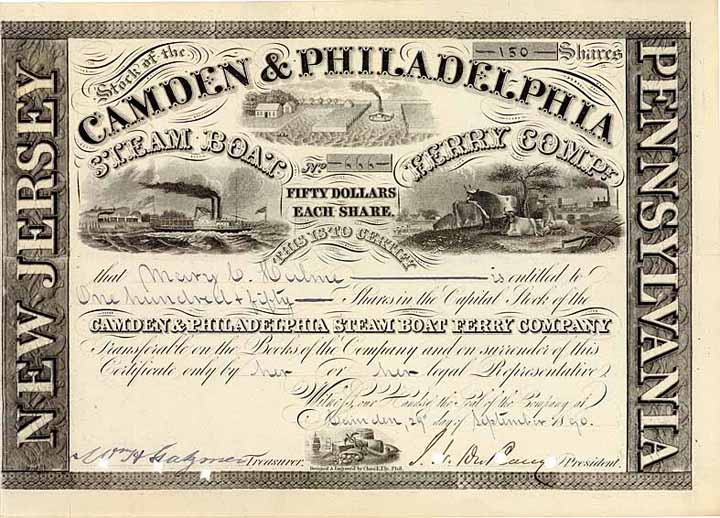 NEW JERSEY
Stock of the
150 Shares
CAMDEN & PHILADELPHIA
STEAM BOAT FERRY COMPY.
No. 666
FIFTY DOLLARS
EACH SHARE.
THIS IS TO CERTIFY
that Mary C. Hulme is entitled to
One hundred & fifty Shares in the Capital Stock of the
CAMDEN & PHILADELPHIA STEAM BOAT FERRY COMPANY
Transferable on the Books of the Company and on surrender of this
Certificate only by her or her legal Representative
Witness, our Hands & the Seal of the Company at
Camden 29th day of September 1890.
Treasurer.
President.
Designed & Engraved by Chas. F. Ely. Phil.
PENNSYLVANIA